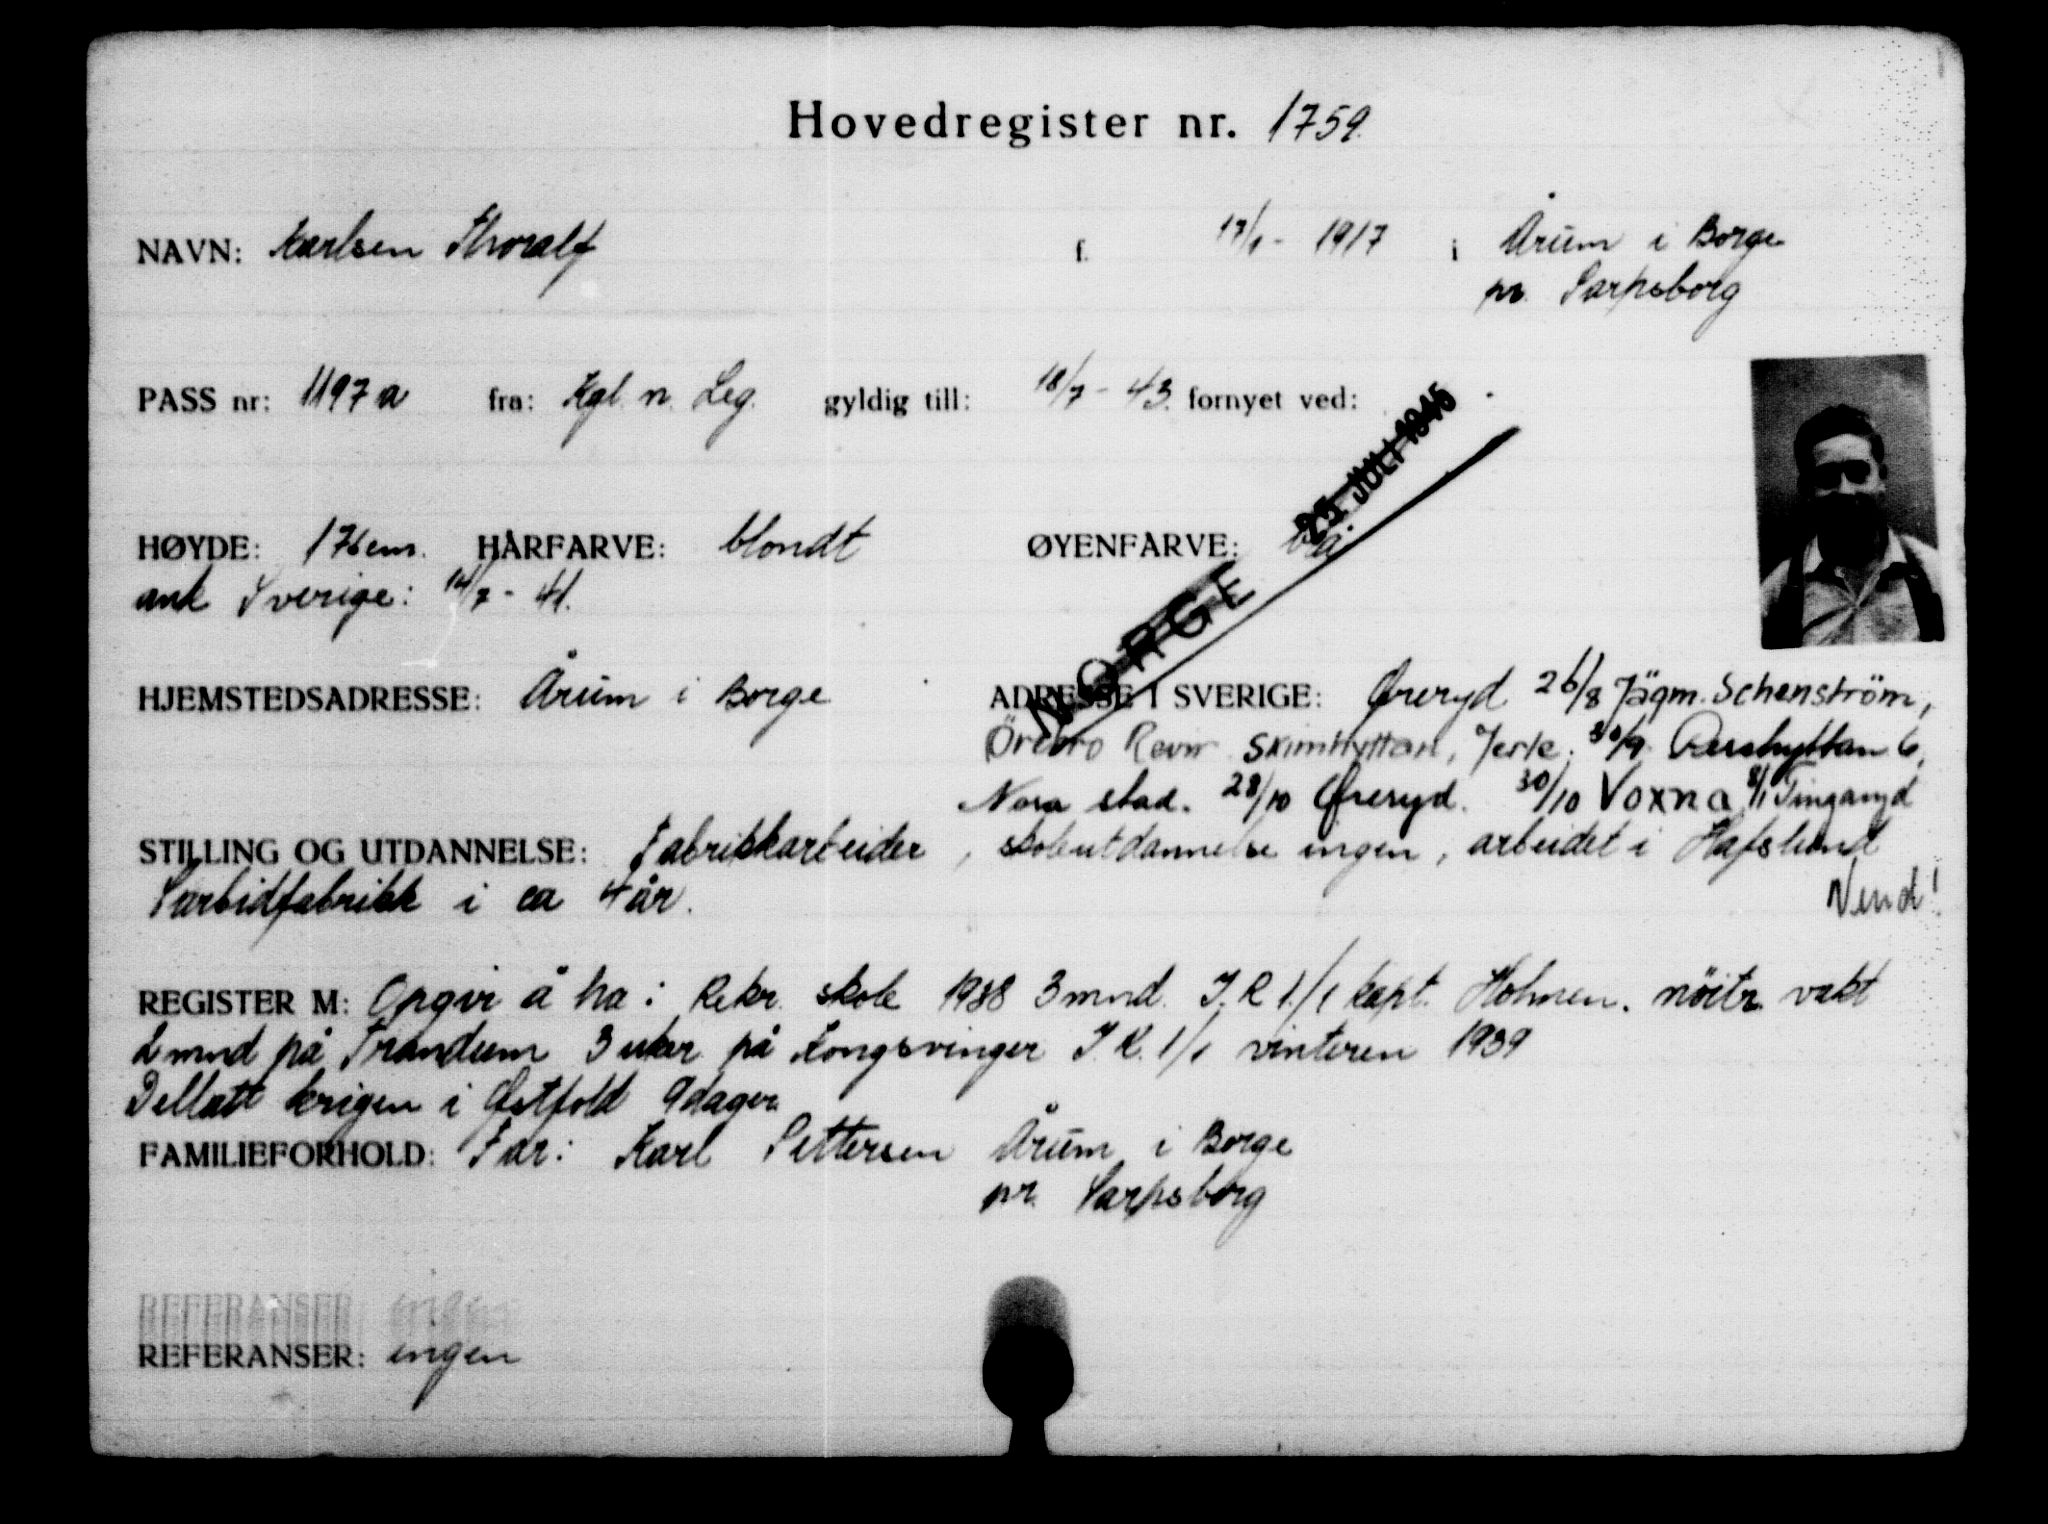 Hovedregister nr. 1759.
NAVN: Karlsen Thoralf f. 17/1 - 1917 i Årum i Borge
pr. Sarpsborg
PASS nr: 1197a fra: Kgl. n. Leg. gyldig till: 18/7 - 43. fornyet ved:
25 JULI 1945
HØYDE: 176 cm. HÅRFARVE: blondt ØYENFARVE: blå.
ank Sverige: 14/7 - 41.
NORGE
HJEMSTEDSADRESSE: Årum i Borge ADRESSE I SVERIGE: Øreryd 26/8 Jägm. Schenström,
Örebro Revir Skimhyttan, Jerle. 30/9 Pershyttan 6,
Nora stad. 28/10 Øreryd. 30/10 Voxna 8/1 Tingaryd
STILLING OG UTDANNELSE: Fabrikkarbeider, skoleutdannelse ingen, arbeidet i Hafslund
Karbidfabrikk i ca 4 år.
Vend!
REGISTER M: Opgir å ha: Rekr. skole 1938 3 mnd. I.R 1/1 kapt. Holmen. nöitr. vakt
2 mnd på Trandum 3 uker på Kongsvinger I.R. 1/1 vinteren 1939
Deltatt krigen i Østfold 9 dager
FAMILIEFORHOLD: Far: Karl Pettersen Årum i Borge
pr. Sarpsborg
REFERANSER: ingen